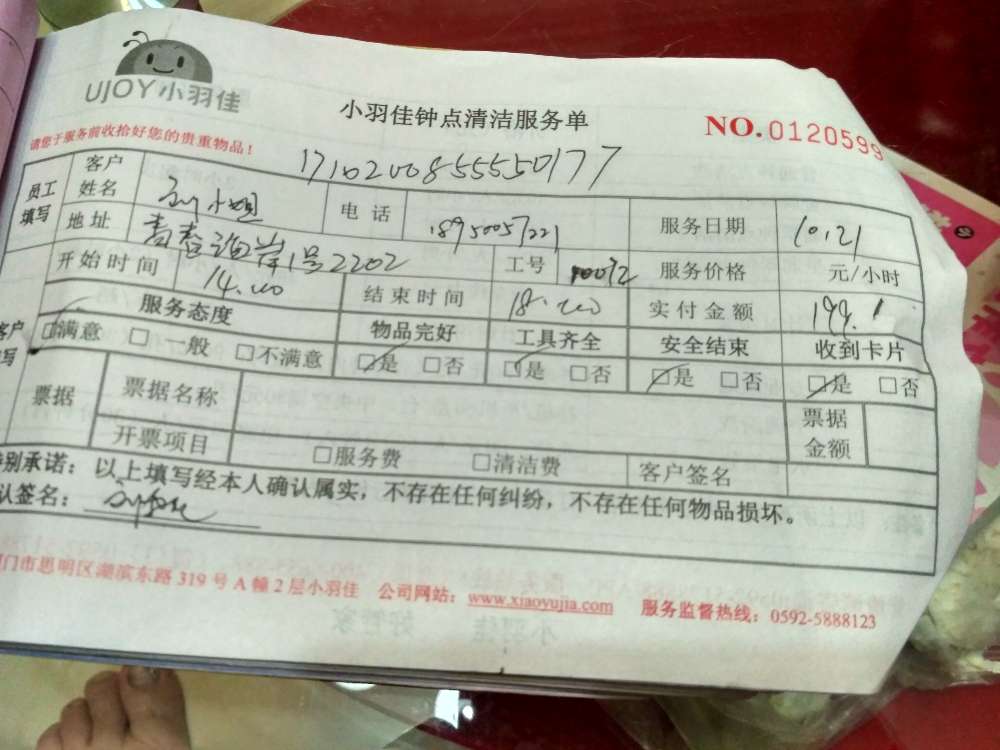 UJOY小羽佳
小羽佳钟点清洁服务单
NO.0120599
请您于服务前收拾好您的贵重物品！
员工填写 客户姓名 小姐 电话 18950057221 服务日期 10.21
地址 1号2202 工号 服务价格 元/小时
开始时间 14.00 结束时间 18.00 实付金额 199.
服务态度 物品完好 工具齐全 安全结束 收到卡片
☑满意 □一般 □不满意 ☑是 □否 ☑是 □否 ☑是 □否 ☑是 □否
票据 票据名称 票据金额
开票项目 □服务费 □清洁费 客户签名
别承诺：以上填写经本人确认属实，不存在任何纠纷，不存在任何物品损坏。
认签名：
门市思明区湖滨东路319号A幢2层小羽佳 公司网站：www.xiaoyujia.com 服务监督热线：0592-5888123